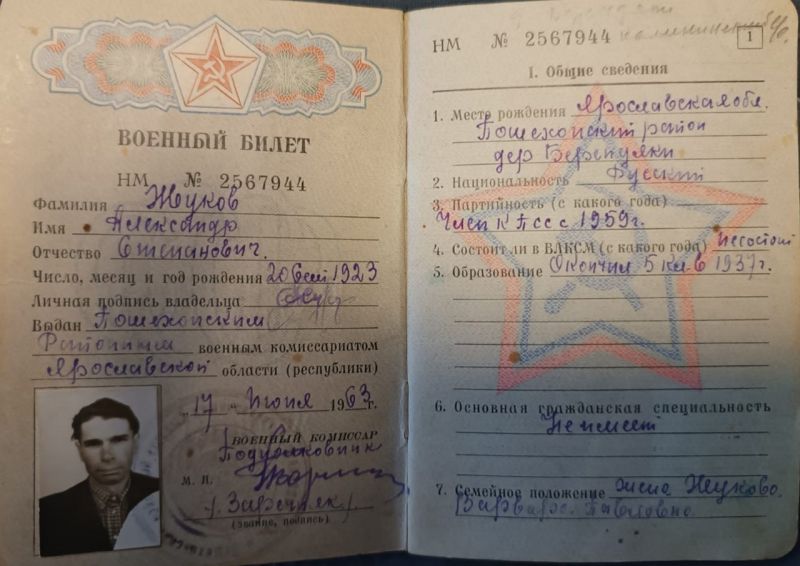 ВОЕННЫЙ БИЛЕТ
НМ № 2567944
Фамилия Жуков
Имя Александр
Отчество Степанович.
Число, месяц и год рождения 20 1923
Личная подпись владельца
Выдан Пошехонским
Районным военным комиссариатом
Ярославской области (республики)
„17 “ июня 1963 г.
ВОЕННЫЙ КОМИССАР
Подполковник
М. П.
(звание, подпись)
НМ № 2567944
1
I. Общие сведения
1. Место рождения Ярославская обл.
Пошехонский район
дер
2. Национальность Русский
3. Партийность (с какого года)
Член КПСС с 1959г.
4. Состоит ли в ВЛКСМ (с какого года) не состоит
5. Образование Окончил 5 кл. в 1937г.
6. Основная гражданская специальность
Не имеет
7. Семейное положение жена Жукова
Варвара Павловна